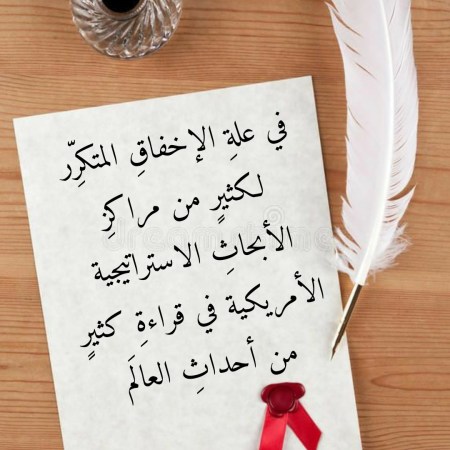 في علةِ الإخفاقِ المتكرِّر
لكثيرٍ من مراكزِ
الأبحاثِ الاستراتيجية
الأمريكية في قراءةِ كثيرٍ
من أحداثِ العالَم